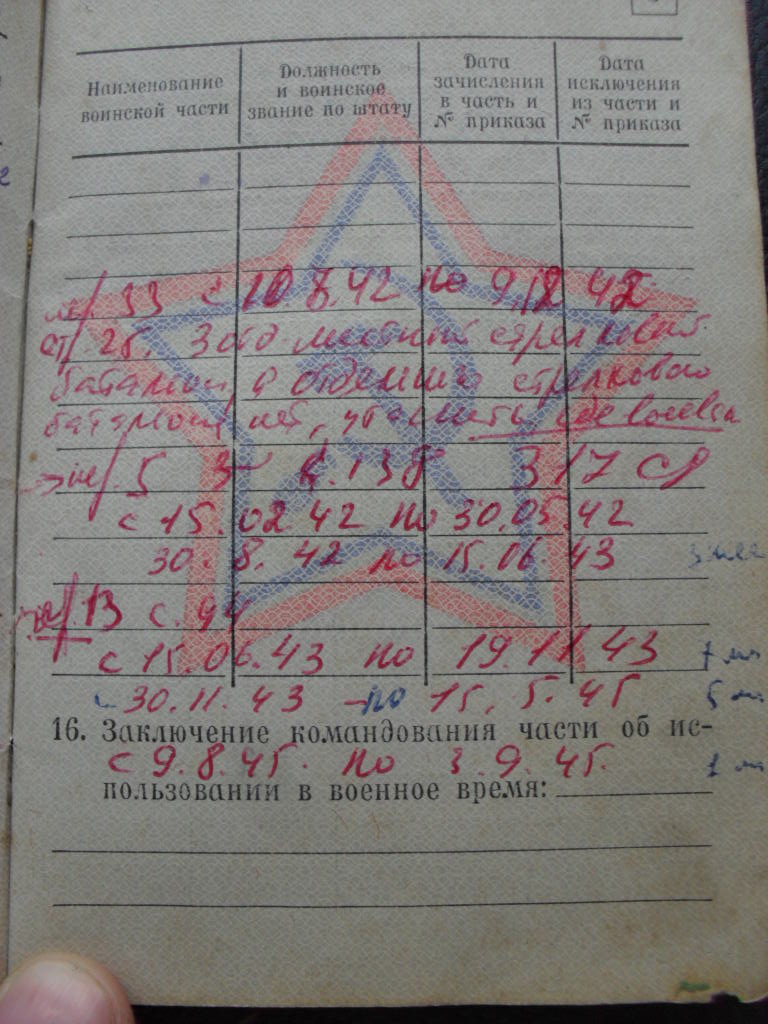 Наименование воинской части
Должность и воинское звание по штату
Дата зачисления в часть и № приказа
Дата исключения из части и № приказа
33 с 10 8.42 по 9/12 42
25. местный стрелковый
батальон стрелкового
нет, уточнить где воевал
5 317 сд
с 15.02 42 по 30.05.42
30.8.42 по 15.06.43
13 с. 94
с 15.06.43 по 19.11.43
30.11.43 по 15.5.45
16. Заключение командования части об ис-
с 9.8.45. по 3.9.45.
пользовании в военное время: